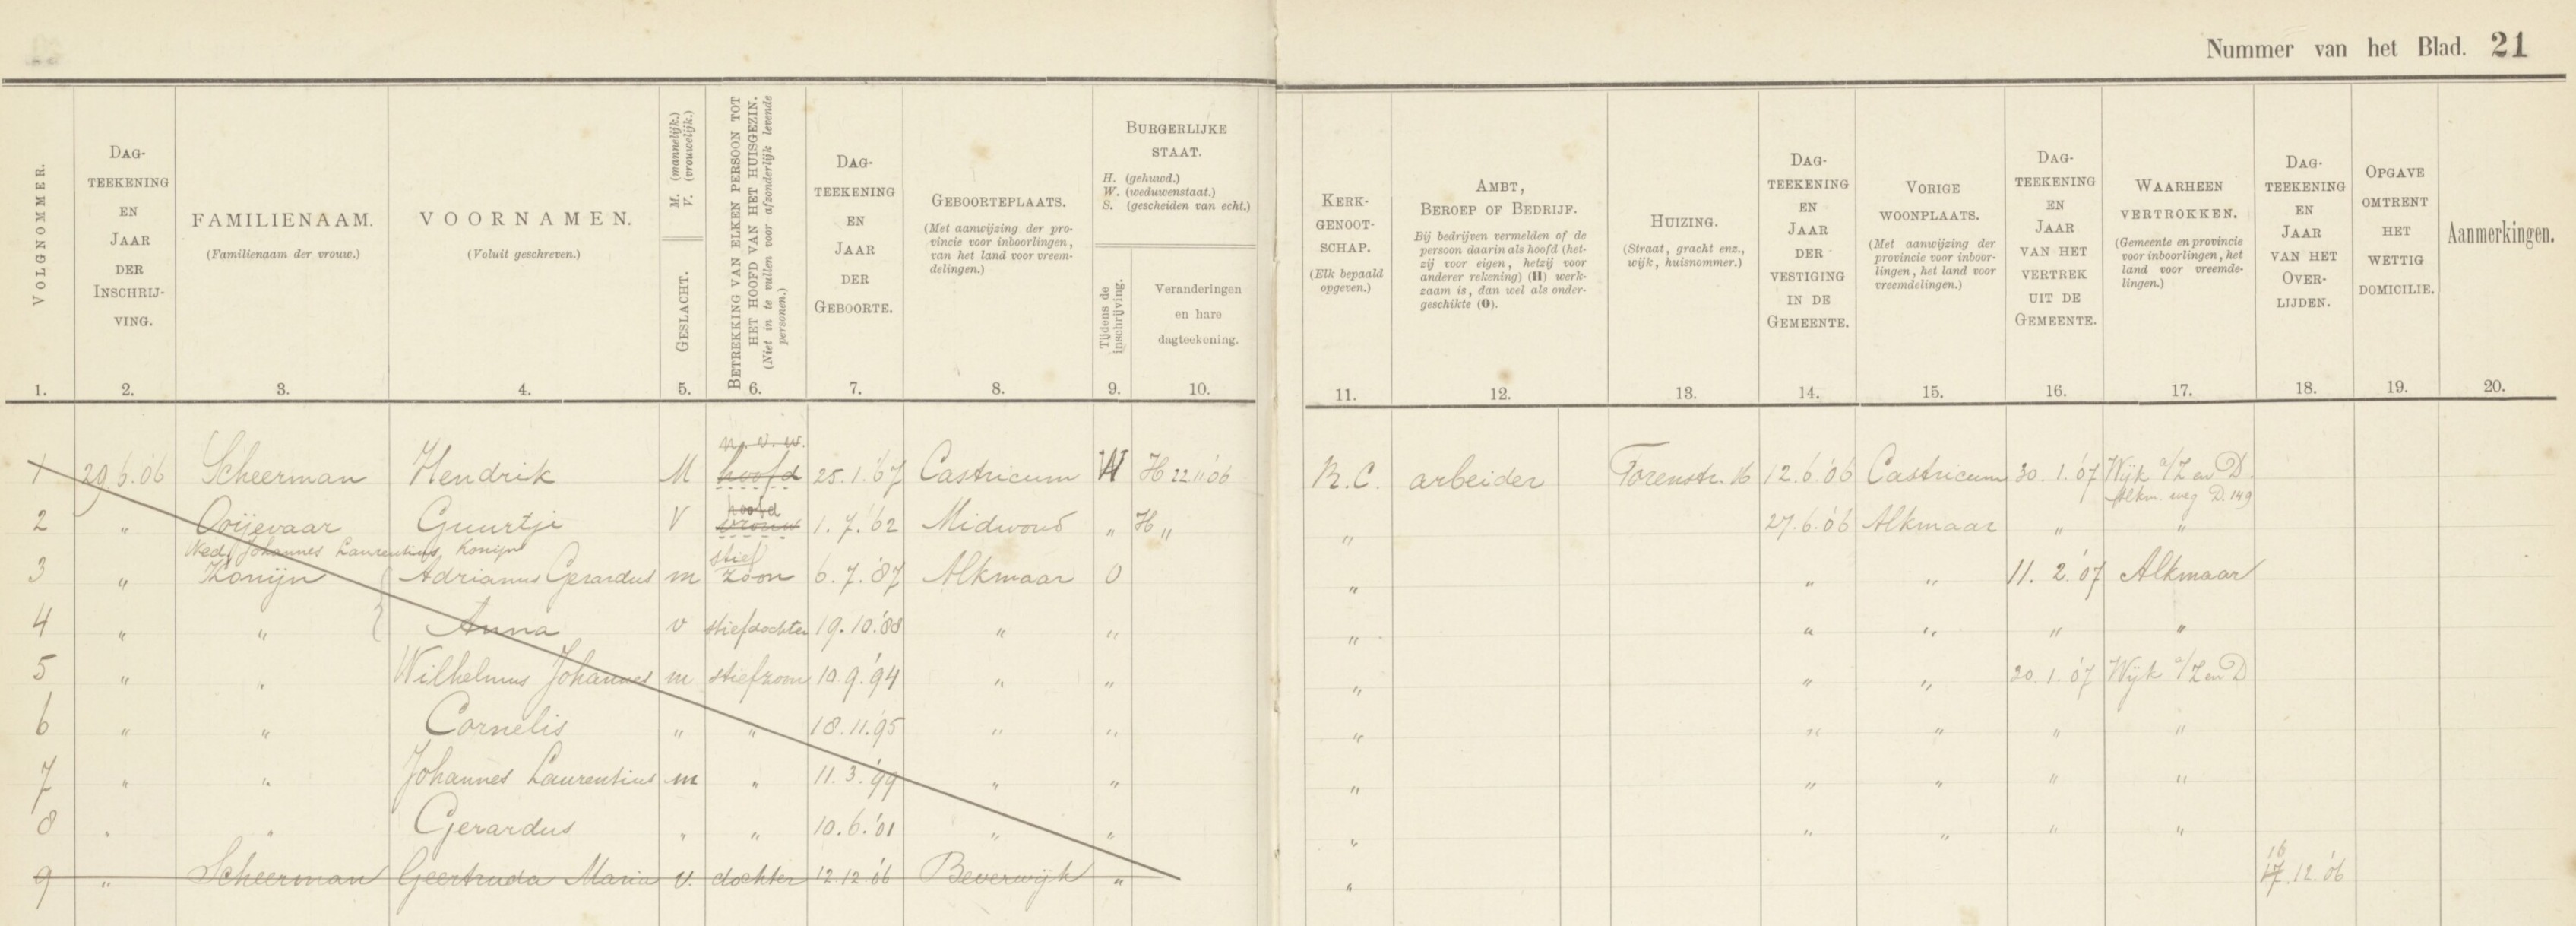 Nummer van het Blad. 21
VOLGNOMMER.
1.
DAG-
TEEKENING
EN
JAAR
DER
INSCHRIJ-
VING.
2.
FAMILIENAAM.
(Familienaam der vrouw.)
3.
VOORNAMEN.
(Voluit geschreven.)
4.
M. (mannelijk.)
V. (vrouwelijk.)
GESLACHT.
5.
BETREKKING VAN ELKEN PERSOON TOT
HET HOOFD VAN HET HUISGEZIN.
(Niet in te vullen voor afzonderlijk levende
personen.)
6.
DAG-
TEEKENING
EN
JAAR
DER
GEBOORTE.
7.
GEBOORTEPLAATS.
(Met aanwijzing der pro-
vincie voor inboorlingen,
van het land voor vreem-
delingen.)
8.
BURGERLIJKE
STAAT.
H. (gehuwd.)
W. (weduwenstaat.)
S. (gescheiden van echt.)
Tijdens de
inschrijving.
9.
Veranderingen
en hare
dagteekening.
10.
KERK-
GENOOT-
SCHAP.
(Elk bepaald
opgeven.)
11.
AMBT,
BEROEP OF BEDRIJF.
Bij bedrijven vermelden of de
persoon daarin als hoofd (het-
zij voor eigen, hetzij voor
anderer rekening) (H) werk-
zaam is, dan wel als onder-
geschikte (O).
12.
HUIZING.
(Straat, gracht enz.,
wijk, huisnommer.)
13.
DAG-
TEEKENING
EN
JAAR
DER
VESTIGING
IN DE
GEMEENTE.
14.
VORIGE
WOONPLAATS.
(Met aanwijzing der
provincie voor inboor-
lingen, het land voor
vreemdelingen.)
15.
DAG-
TEEKENING
EN
JAAR
VAN HET
VERTREK
UIT DE
GEMEENTE.
16.
WAARHEEN
VERTROKKEN.
(Gemeente en provincie
voor inboorlingen, het
land voor vreemde-
lingen.)
17.
DAG-
TEEKENING
EN
JAAR
VAN HET
OVER-
LIJDEN.
18.
OPGAVE
OMTRENT
HET
WETTIG
DOMICILIE.
19.
Aanmerkingen.
20.
n. v. w.
1 29.6.'06 Scheerman Hendrik M hoofd 25.1.'67 Castricum W H 22.11.'06 R.C. arbeider Torenstr. 16 12.6.'06 Castricum 30.1.'07 Wijk a/Z en D.
Alkm. weg D. 149
hoofd
2 " Ooijevaar Guurtje V vrouw 1.7.'62 Midwoud " H " " 27.6.'06 Alkmaar " "
Wed. Johannes Laurentius Konijn
stief
3 " Konijn Adrianus Gerardus m zoon 6.7.'87 Alkmaar O " " " 11.2.'07 Alkmaar
4 " " Anna v stiefdochter 19.10.'88 " " " " " " "
5 " " Wilhelmus Johannes m stiefzoon 10.9.'94 " " " " " 30.1.'07 Wijk a/Z en D
6 " " Cornelis " " 18.11.'95 " " " " " " "
7 " " Johannes Laurentius m " 11.3.'99 " " " " " " "
8 " " Gerardus " " 10.6.'01 " " " " " " "
16
9 " Scheerman Geertruda Maria v. dochter 12.12.'06 Beverwijk " " 17.12.'06